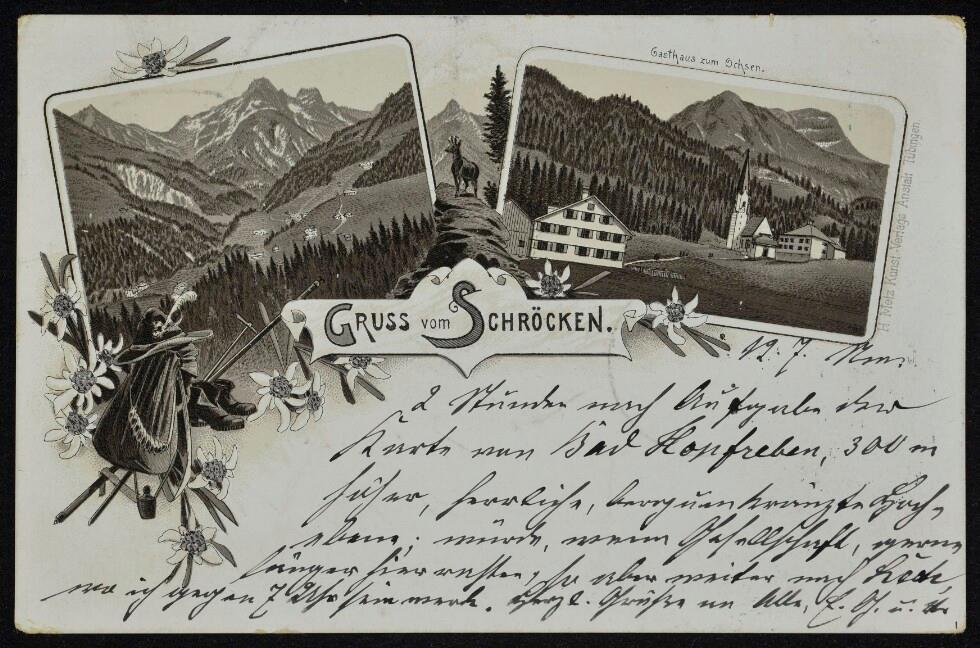 Gasthaus zum Ochsen.
H. Metz Kunst-Verlags Anstalt Tübingen.
GRUSS VOM SCHRÖCKEN.
12. 7.
2 Stunden nach Aufgabe der
Karte von Bad Hopfreben, 300 m
höher, herrliche, bergumkränzte Hoch-
ebene; würde, wenn Gesellschaft, gerne
länger hier rasten, so aber weiter nach Lech
wo ich gegen 7 Uhr sein werde. Herzl. Grüße an Alle,